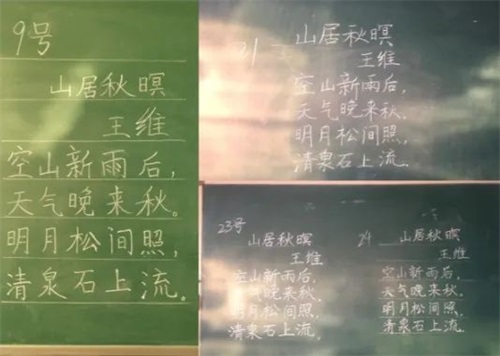 9号
山居秋暝
王维
空山新雨后,
天气晚来秋。
明月松间照,
清泉石上流。
21
山居秋暝
王维
空山新雨后,
天气晚来秋.
明月松间照,
清泉石上流.
23号
山居秋暝
王维
空山新雨后,
天气晚来秋.
明月松间照,
清泉石上流.
24
山居秋暝
王维
空山新雨后,
天气晚来秋.
明月松间照.
清泉石上流.